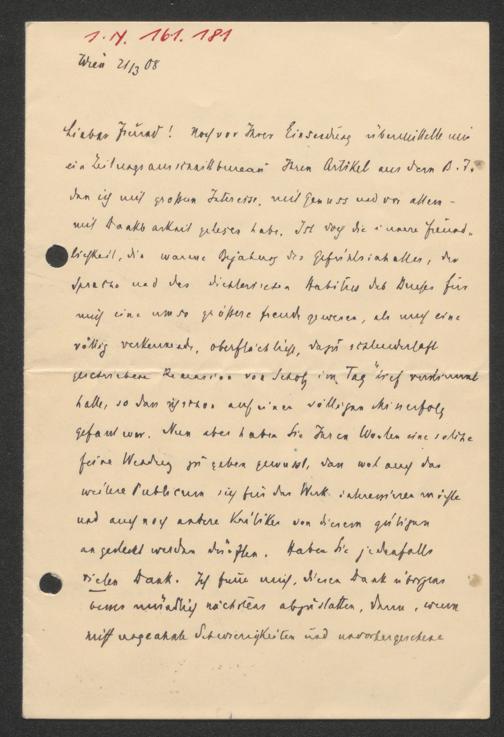 I. N. 161.181
Wien 21/3 08
Lieber Freund! Noch vor Ihrer Einsendung übermittelte mir
ein Zeitungsausschnittbureau Ihren Artikel aus dem B. T.
den ich mit großem Interesse, mit Genuss und vor allem –
mit Dankbarkeit gelesen habe. Ist doch die innere Freund-
lichkeit, die warme Bejahung des Gefühlsinhaltes, der
Sprache und des dichterischen Habitus des Buches für
mich eine umso größere Freude gewesen, als mich eine
völlig verkennende, oberflächliche, dazu schluderhaft
geschriebene Recension von Scholz im „Tag“ tief verstimmt
hatte, so dass ich schon auf einen völligen Misserfolg
gefasst war. Nun aber haben Sie Ihren Worten eine solche
feine Wendung zu geben gewusst, dass wol auch das
weitere Publicum sich für das Werk interessieren möchte
und auch noch andere Kritiker von diesem gütigen
angesteckt werden dürften. Haben Sie jedenfalls
vielen Dank. Ich freue mich, diesen Dank übrigens
mündlich nächstens abzustatten, denn, wenn
nicht ungeahnte Schwierigkeiten und unvorhergesehene